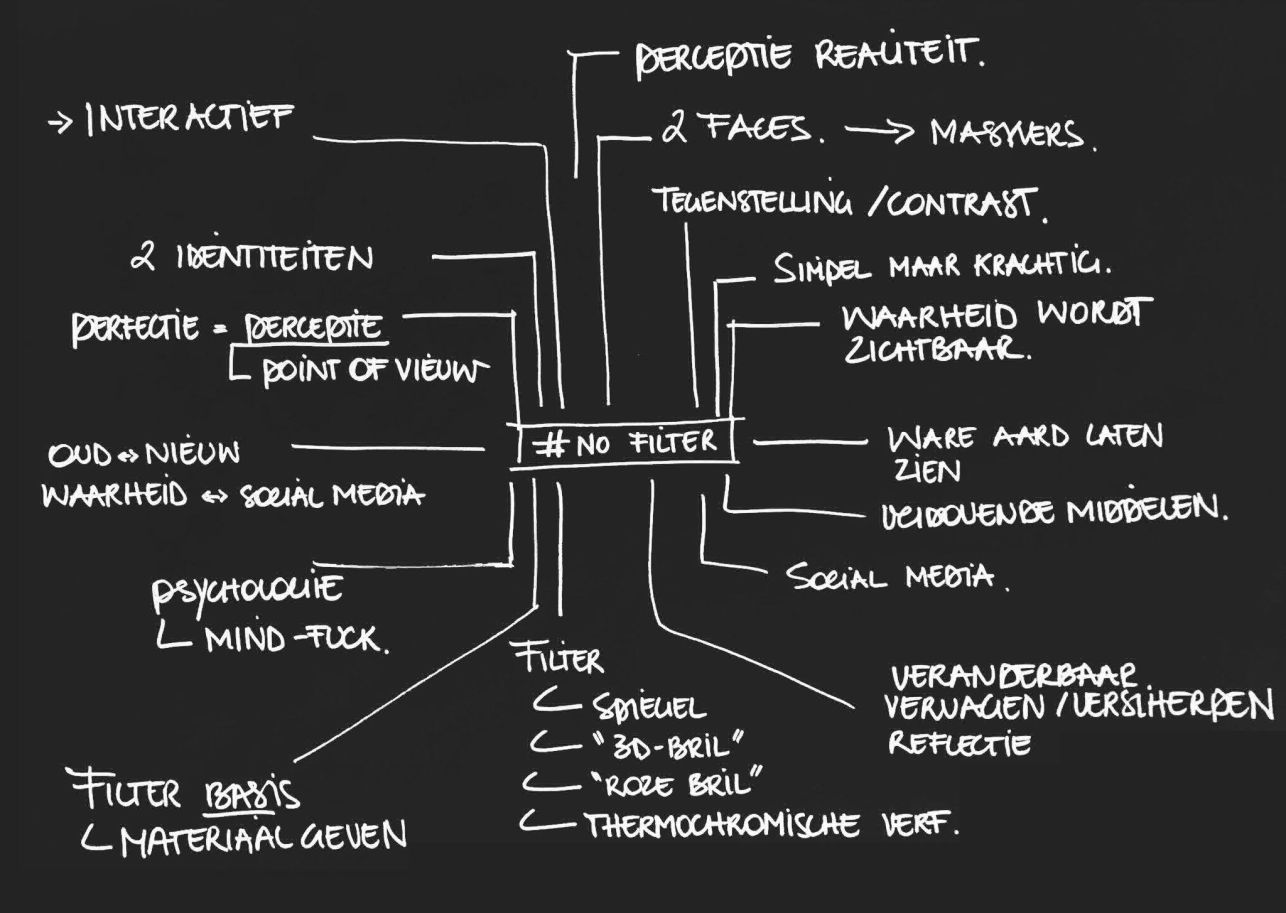 PERCEPTIE REALITEIT.
→ INTERACTIEF
2 FACES. → MASKERS.
TEGENSTELLING / CONTRAST.
2 IDENTITEITEN
SIMPEL MAAR KRACHTIG.
PERFECTIE = PERCEPTIE
POINT OF VIEUW
WAARHEID WORDT
ZICHTBAAR.
# NO FILTER
OUD ↔ NIEUW
WAARHEID ↔ SOCIAL MEDIA
WARE AARD LATEN
ZIEN
MIDDELEN.
SOCIAL MEDIA.
PSYCHOLOGIE
MIND-FUCK.
FILTER
SPIEGEL
"3D-BRIL"
"ROZE BRIL"
THERMOCHROMISCHE VERF.
VERANDERBAAR
VERVAGEN / VERSCHERPEN
REFLECTIE
FILTER BASIS
MATERIAAL GEVEN